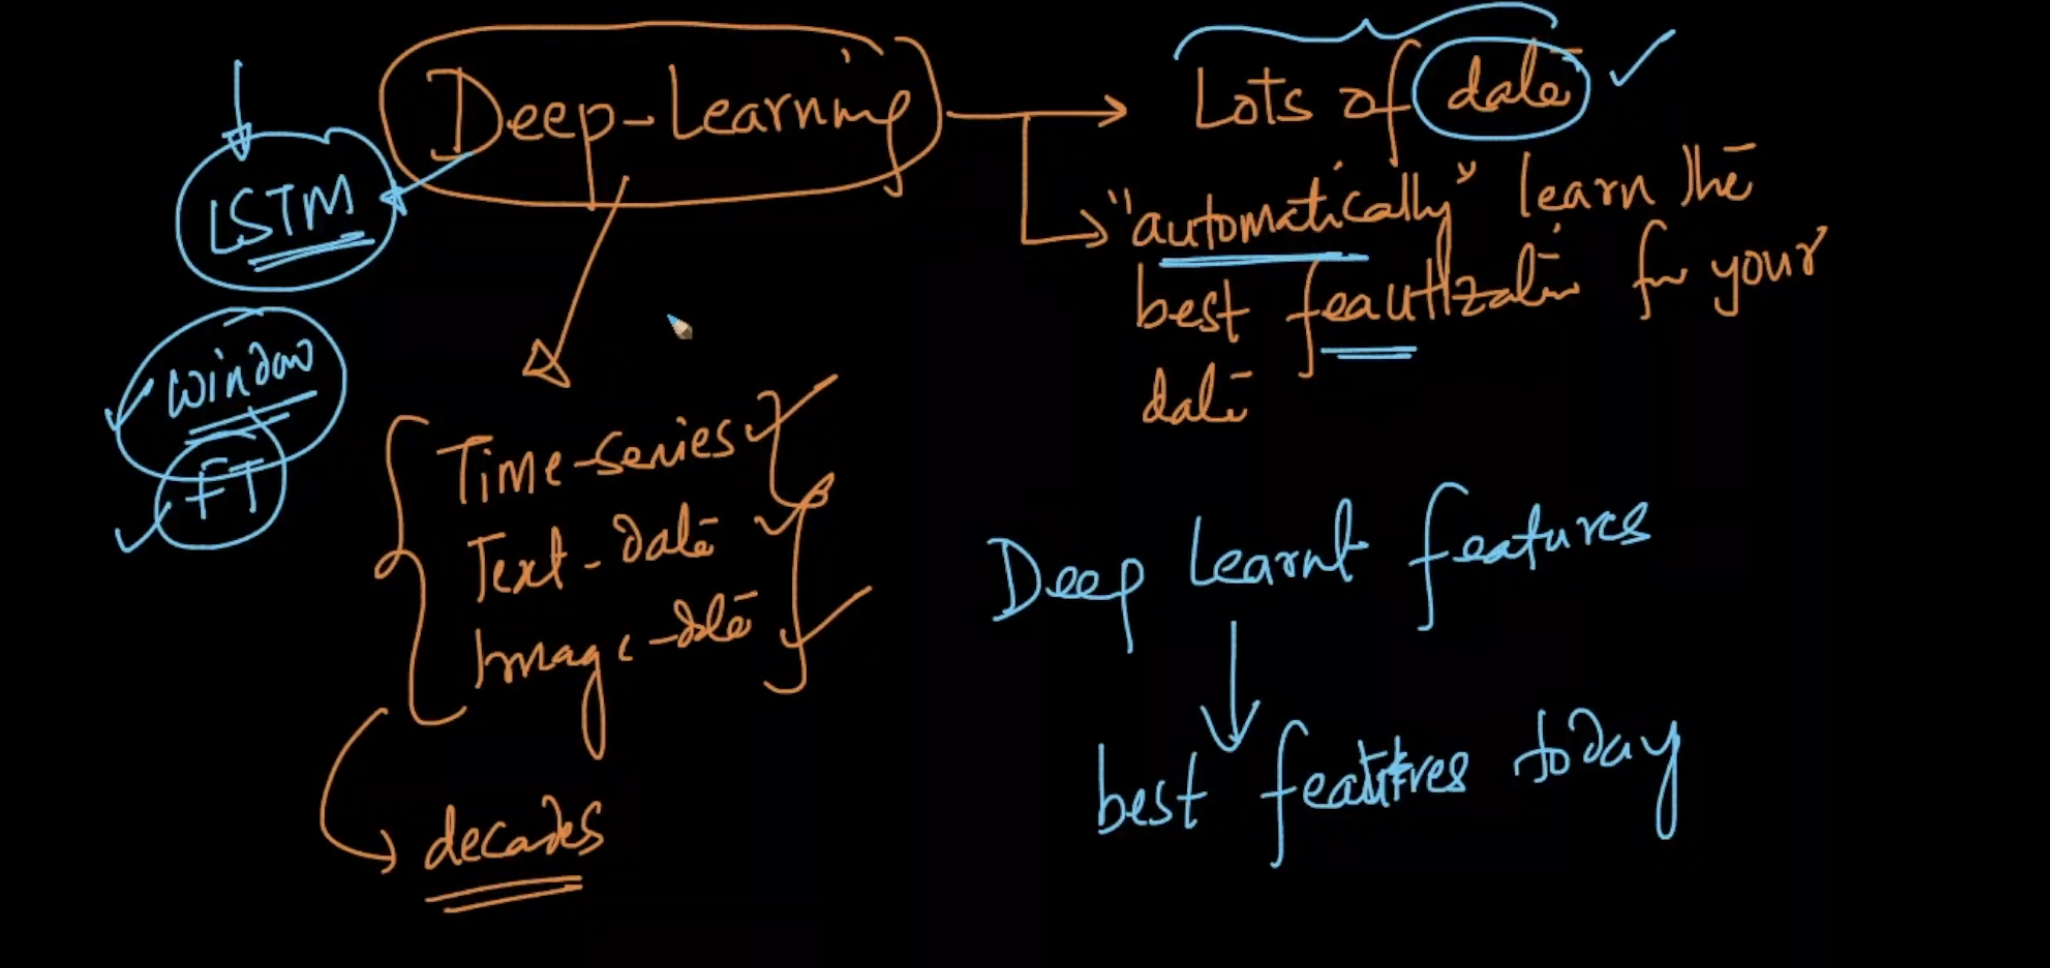 Deep-Learning
Lots of data
"automatically" learn the
best feautization for your
data
LSTM
Window
FT
Time-series
Text-data
Image-data
decades
Deep Learnt features
best features today